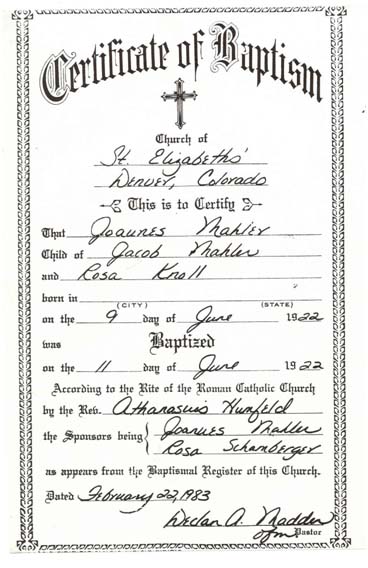 Certificate of Baptism
Church of
St. Elizabeths'
Denver, Colorado
This is to Certify
That Joannes Mahler
Child of Jacob Mahler
and Rosa Knoll
born in
(CITY) (STATE)
on the 9 day of June 1922
was Baptized
on the 11 day of June 1922
According to the Rite of the Roman Catholic Church
by the Rev. Athanasius Hunfeld
the Sponsors being { Joannes Mahler
Rosa Schamberger
as appears from the Baptismal Register of this Church.
Dated February 22, 1983
Declan A. Madden
ofm Pastor